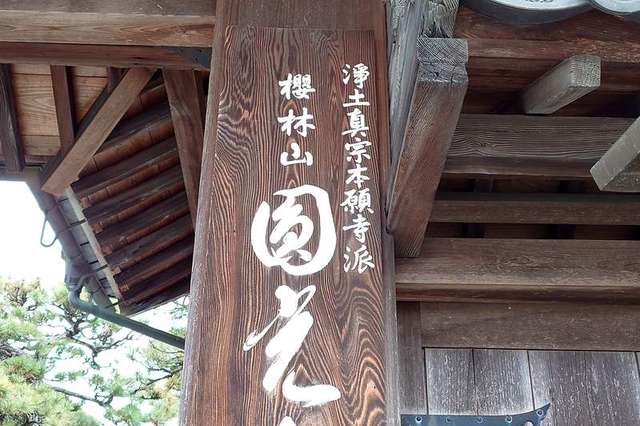 淨土真宗本願寺派
櫻林山
圓光